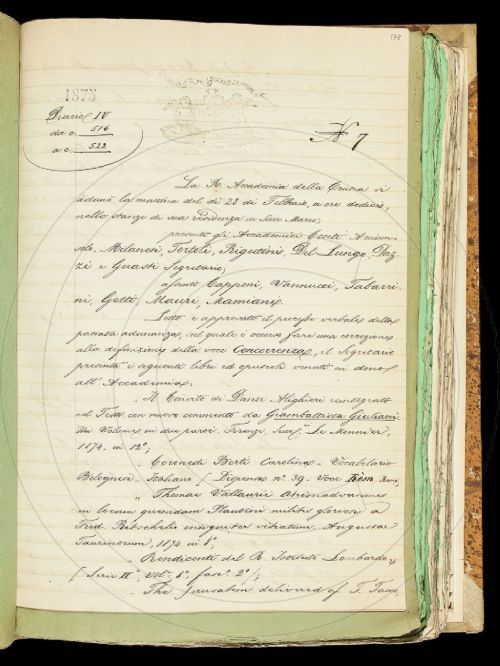 179
1873
Diario IV
da c. 516
a c. 522
N° 7
La R. Accademia della Crusca si
adunò la mattina del dì 23 di Febbraio, a ore dodici,
nelle stanze di sua residenza in San Marco;
presenti gli Accademici Conti Arcicon-
solo, Milanesi, Tortoli, Rigutini, Del-Lungo, Daz-
zi e Guasti Segretario;
assenti Capponi, Vannucci, Tabarri-
ni, Gotti, Mauri, Mamiani.
Letto e approvato il processo verbale della
passata adunanza, nel quale è occorso fare una correzione
alla definizione della voce Concorrenza, il Segretario
presenta i seguenti libri ed opuscoli venuti in dono
all'Accademia.
Il Convito di Dante Alighieri reintegrato
nel Testo con nuovo commento da Giambattista Giuliani.
Un Volume in due parti. Firenze, Succ. Le Monnier,
1874. in 12°;
Coronedi Berti Carolina - Vocabolario
Bolognese - Italiano / Dispensa n°. 39. Voce
" Thomae Vallaurii Animadversiones
in locum quemdam Plautini militis gloriosi a
Frid. Ritschelio insigniter vitiatum. Augustae
Taurinorum, 1874 in 8°
" Rendiconti del R. Istituto Lombardo
/ Serie II. Vol. 6°. fasc. 2°/;
" The Jerusalem delivered of T. Tasso,